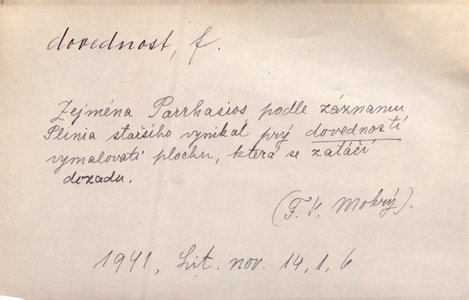 dovednost, f.
Zejména Parrhasios podle záznamu
Plinia staršího vynikal prý dovedností
vymalovati plochu, která se zatáčí
dozadu.
(F. V. Mokrý).
1941, Lit. nov. 14, 1, 6